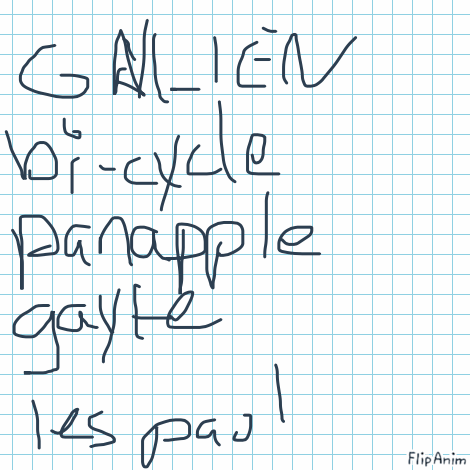 GAL_IEN
bi-cycle
panapple
gayte
les paul
FlipAnim